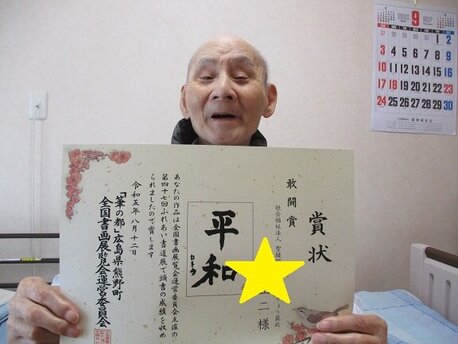 賞状
敢闘賞
社会福祉法人
二様
平和
あなたの作品は全国書画展覧会運営委員会主催の
第四十七回ふれあい書道展で頭書の成績を収め
られましたので賞します
令和五年八月十二日
「筆の都」広島県熊野町
全国書画展覧会運営委員会
9
1 2
3 4 5 6 7 8 9
10 11 12 13 14 15 16
17 18 19 20 21 22 23
24 25 26 27 28 29 30